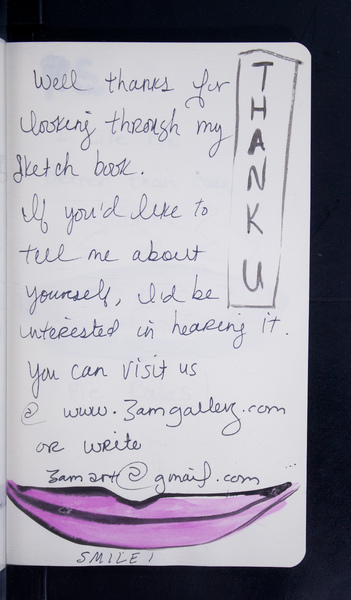 Well thanks for
looking through my
sketch book.
If you'd like to
tell me about
yourself, I'd be
interested in hearing it.
You can visit us
@ www.3amgallery.com
or write
3amart@gmail.com
...
SMILE!
THANK U